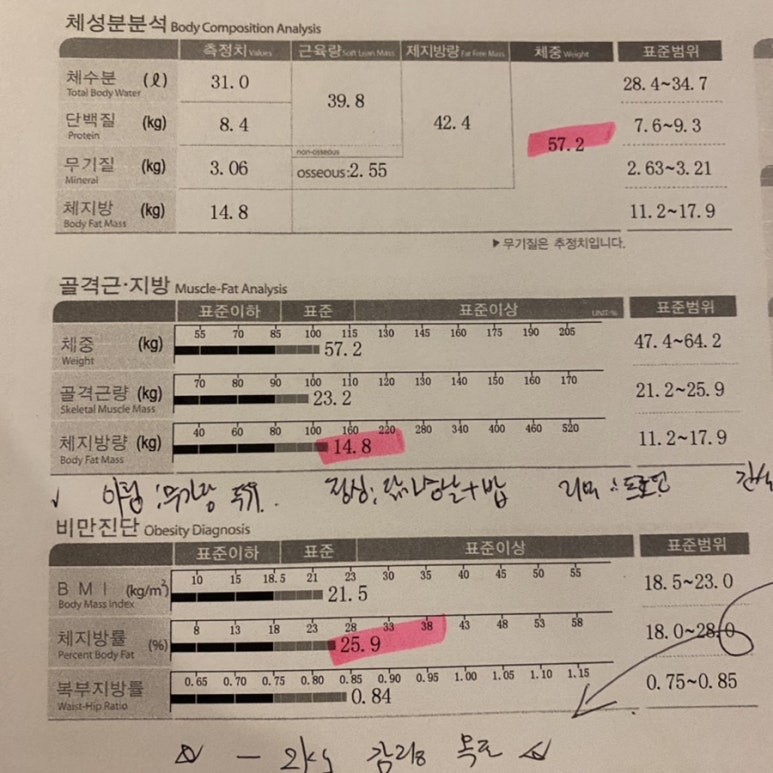 체성분분석 Body Composition Analysis
측정치 Values 근육량 Soft Lean Mass 제지방량 Fat Free Mass 체중 Weight 표준범위
체수분 (ℓ) 31.0 39.8 42.4 57.2 28.4~34.7
Total Body Water
단백질 (kg) 8.4 7.6~9.3
Protein
non-osseous
무기질 (kg) 3.06 osseous:2.55 2.63~3.21
Mineral
체지방 (kg) 14.8 11.2~17.9
Body Fat Mass
▶무기질은 추정치입니다.
골격근·지방 Muscle-Fat Analysis
표준이하 표준 표준이상 UNIT:% 표준범위
55 70 85 100 115 130 145 160 175 190 205
체중 (kg) 57.2 47.4~64.2
Weight
70 80 90 100 110 120 130 140 150 160 170
골격근량 (kg) 23.2 21.2~25.9
Skeletal Muscle Mass
40 60 80 100 160 220 280 340 400 460 520
체지방량 (kg) 14.8 11.2~17.9
Body Fat Mass
아침: 무가당 두유. 점심: +밥
비만진단 Obesity Diagnosis
표준이하 표준 표준이상 표준범위
10 15 18.5 21 23 30 35 40 45 50 55
BMI (kg/m²) 21.5 18.5~23.0
Body Mass Index
8 13 18 23 28 33 38 43 48 53 58
체지방률 (%) 25.9 18.0~28.0
Percent Body Fat
0.65 0.70 0.75 0.80 0.85 0.90 0.95 1.00 1.05 1.10 1.15
복부지방률 0.84 0.75~0.85
Waist-Hip Ratio
☆ - 2kg 감량 목표 ☆